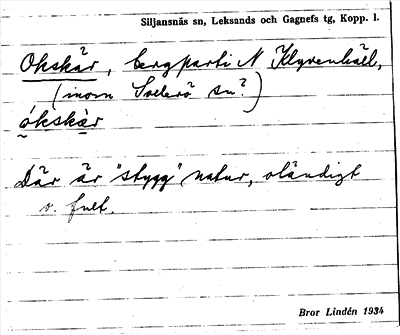 Siljansnäs sn, Leksands och Gagnefs tg, Kopp. l.
Okskär, bergparti N Klyvenhäll,
(inom Sollerö sn?)
okskär
Där är "stygg" natur, oländigt
o. fult.
Bror Lindén 1934